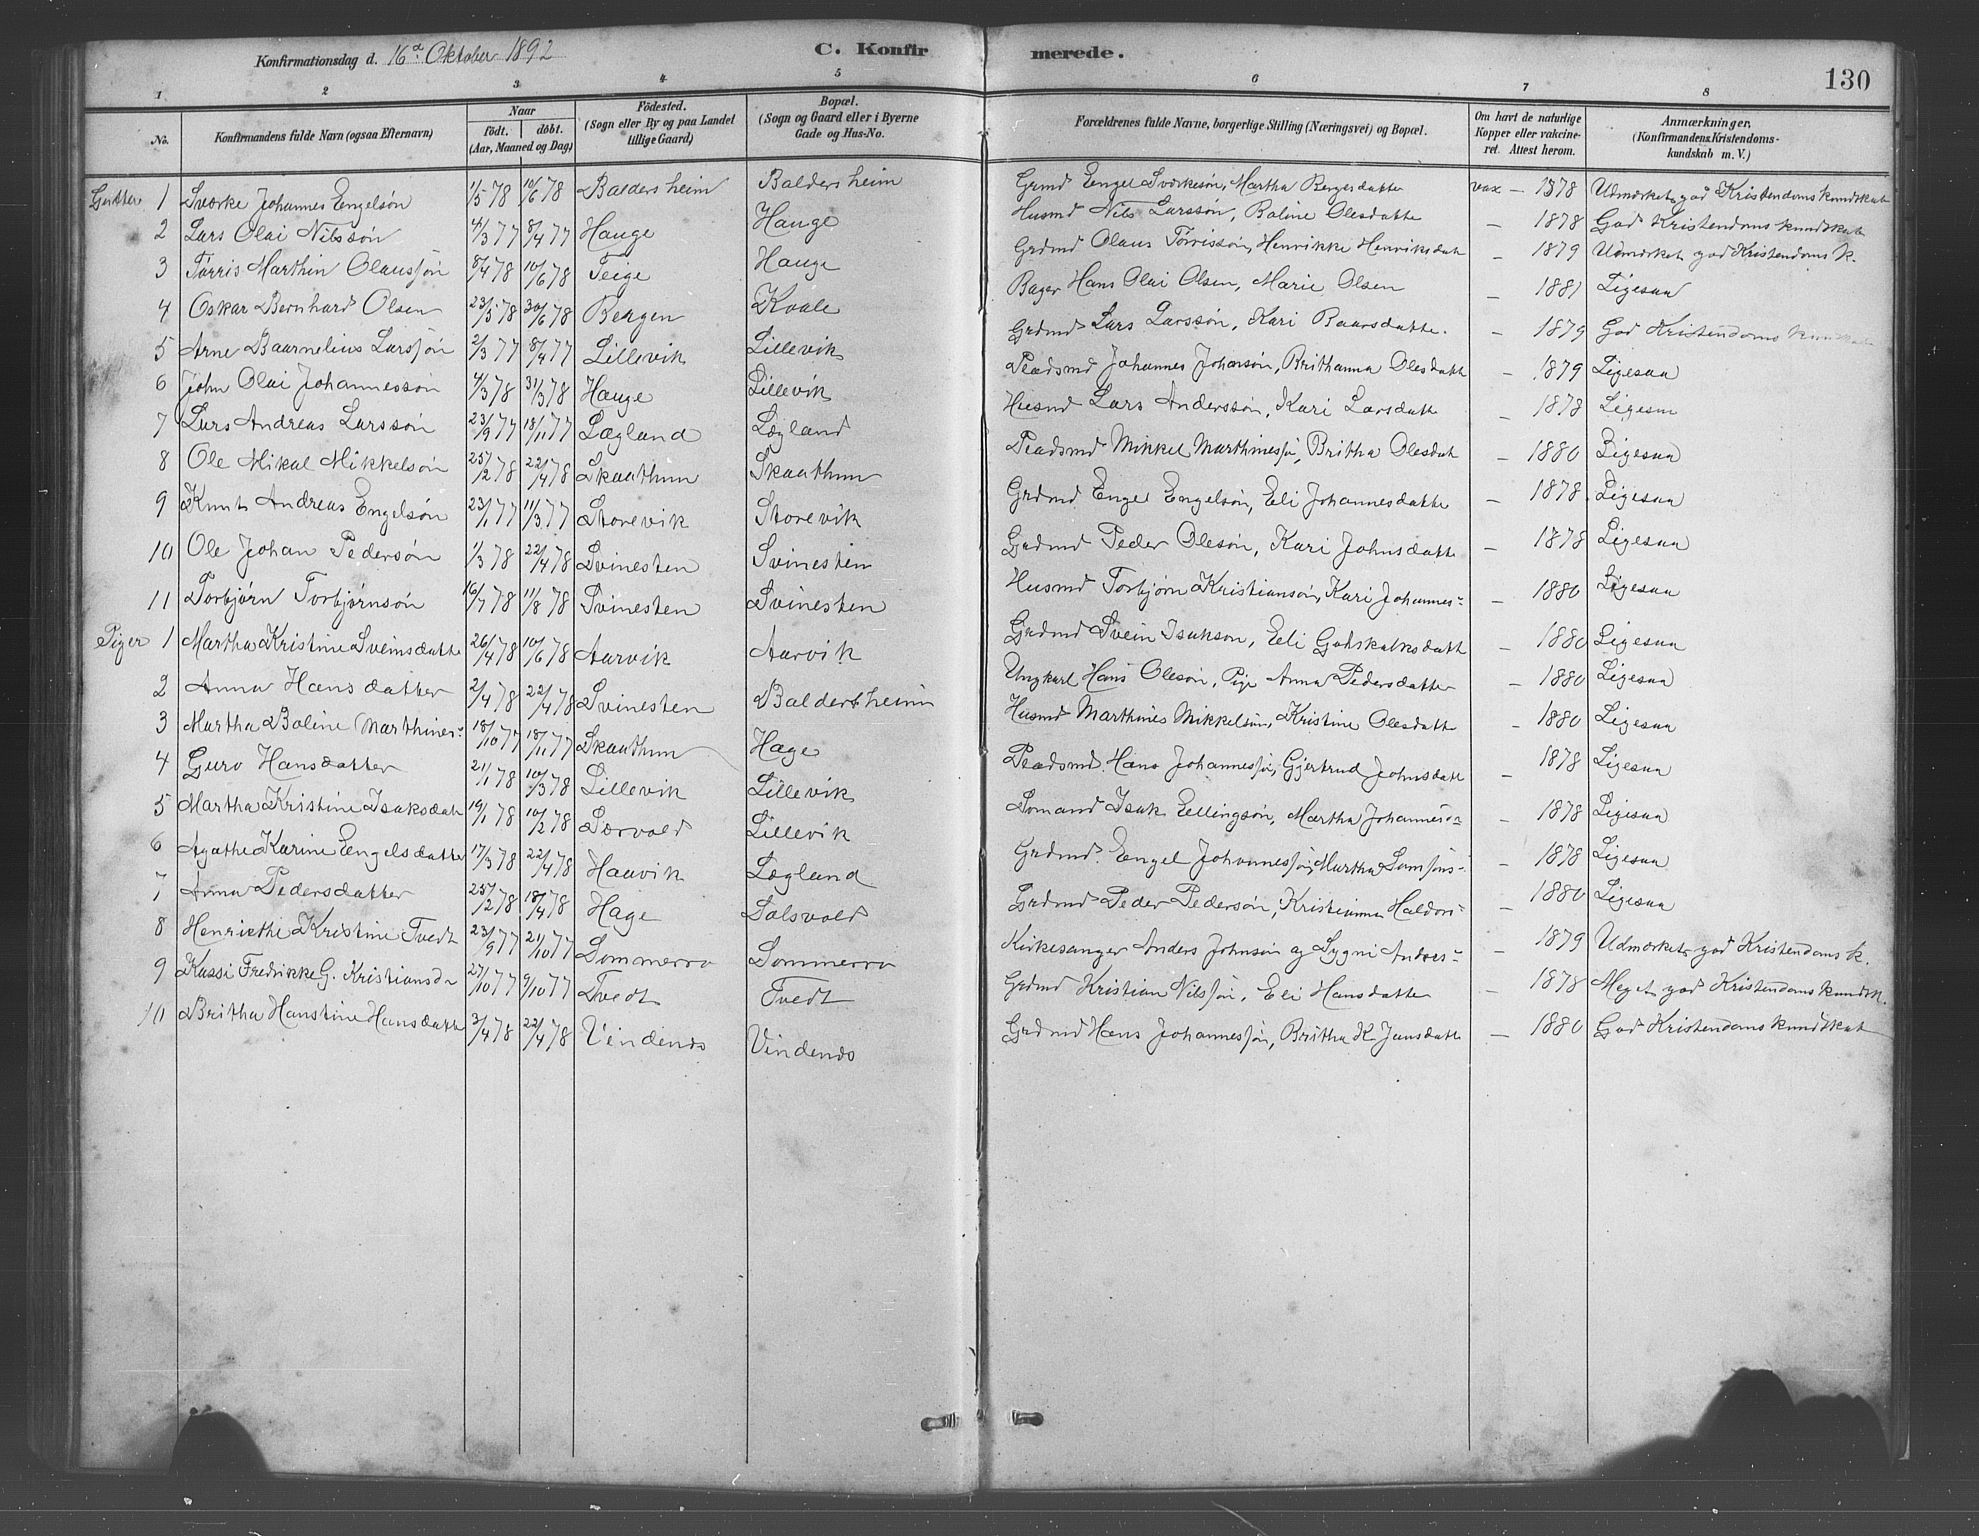 Konfirmationsdag d. 16de Oktober 1892 C. Konfirmerede. 130
1 2 3 4 5 6 7 8
No. Konfirmandens fulde Navn (ogsaa Efternavn) Naar født. døbt. (Aar, Maaned og Dag) Fødested. (Sogn eller By og paa Landet tillige Gaard) Bopæl. (Sogn og Gaard eller i Byerne Gade og Hus-No. Forældrenes fulde Navne, borgerlige Stilling (Næringsvei) og Bopæl. Om havt de naturlige Kopper eller vakcineret. Attest herom. Anmærkninger, (Konfirmandens Kristendomskundskab m. V.)
Gutter 1 Sværke Johannes Engelsøn 1/5 78 10/6 78 Baldersheim Baldersheim Grmd Engel Sværkesøn, Martha Bergesdatter vax – 1878 Udmærket god Kristendomskundskab
2 Lars Olai Nilssøn 4/3 77 8/4 77 Hauge Hauge Husmd Nils Larssøn, Boline Olesdatte – 1878 God Kristendomskundskab
3 Torris Marthin Olaussøn 8/4 78 10/6 78 Teige Hauge Grdmd Olaus Torrissøn, Henrikke Henriksdat – 1879 Udmærket god Kristendoms k.
4 Oskar Bernhard Olsen 23/5 78 30/6 78 Bergen Kvale Bager Hans Olai Olsen, Marie Olsen – 1881 Ligesaa
5 Arne Baarnelius Larssøn 2/3 77 8/4 77 Lillevik Lillevik Grdmd Lars Larssøn, Kari Baarsdatte. – 1879 God Kristendomskundskab
6 John Olai Johannessøn 4/3 78 31/3 78 Hauge Lillevik Pladsmd Johannes Johansøn, Brithanna Olesdatt – 1879 Ligesaa
7 Lars Andreas Larssøn 23/9 77 18/11 77 Lægland Lægland Husmd Lars Anderssøn, Kari Larsdatte – 1878 Ligesaa
8 Ole Mikal Mikkelsøn 25/2 78 22/4 78 Skaathun Skaathun Pladsmd Mikkel Marthinessø, Britha Olesdat – 1880 Ligesaa
9 Knut Andreas Engelsøn 23/1 77 11/3 77 Storevik Storevik Grdmd Engel Engelsøn, Eli Johannesdatte – 1878 Ligesaa
10 Ole Johan Pedersøn 1/3 78 22/4 78 Svinesten Svinesten Grdmd Peder Olesøn, Kari Johnsdatte – 1878 Ligesaa
11 Torbjørn Torbjørnsøn 16/7 78 11/8 78 Svinesten Svinesten Husmd Torbjørn Kristiansøn, Kari Johannes= – 1880 Ligesaa
Piger 1 Martha Kristine Sveinsdatte 26/4 78 10/6 78 Aarvik Aarvik Grdmd Svein Isaksøn, Eli Gotskalksdatt – 1880 Ligesaa
2 Anna Hansdatter 2/4 78 22/4 78 Svinesten Baldersheim Ungkarl Hans Olesøn, Pige Anna Pedersdatter – 1880 Ligesaa
3 Martha Boline Marthines= 18/10 77 18/11 77 Skaathun Hage Husmd Marthines Mikkelsøn, Kristine Olesdatte – 1880 Ligesaa
4 Guro Hansdatter 21/1 78 10/3 78 Lillevik Lillevik Pladsmd. Hans Johannessø, Gjertrud Johnsdatt – 1878 Ligesaa
5 Martha Kristine Isaksdatt 19/1 78 10/2 78 Sørvold Lillevik Somand Isak Ellingsøn, Martha Johannes= – 1878 Ligesaa
6 Agathe Karine Engelsdatter 17/3 78 22/4 78 Haavik Lægland Grdmd. Engel Johannessø, Martha Samsons= – 1878 Ligesaa
7 Anna Pedersdatter 25/2 78 18/4 78 Hage Solsvold Grdmd Peder Pedersøn, Kristianna Haldors= – 1880 Ligesaa
8 Henriethe Kristine Tvedt 23/9 77 21/10 77 Sommerro Sommerro Kirkesanger Anders Johnsøn og Sygni Anders= – 1879 Udmærket god Kristendoms k.
9 Kassi Fredrikke G. Kristiansda 27/10 77 9/10 77 Tvedt Tvedt Grdmd Kristian Nilssøn, Eli Hansdatte – 1878 Meget god Kristendomskundsk.
10 Britha Hanstine Hansdatte 3/4 78 22/4 78 Vindenes Vindenes Grdmd Hans Johannessøn, Britha K Jansdatt – 1880 God Kristendomskundskab